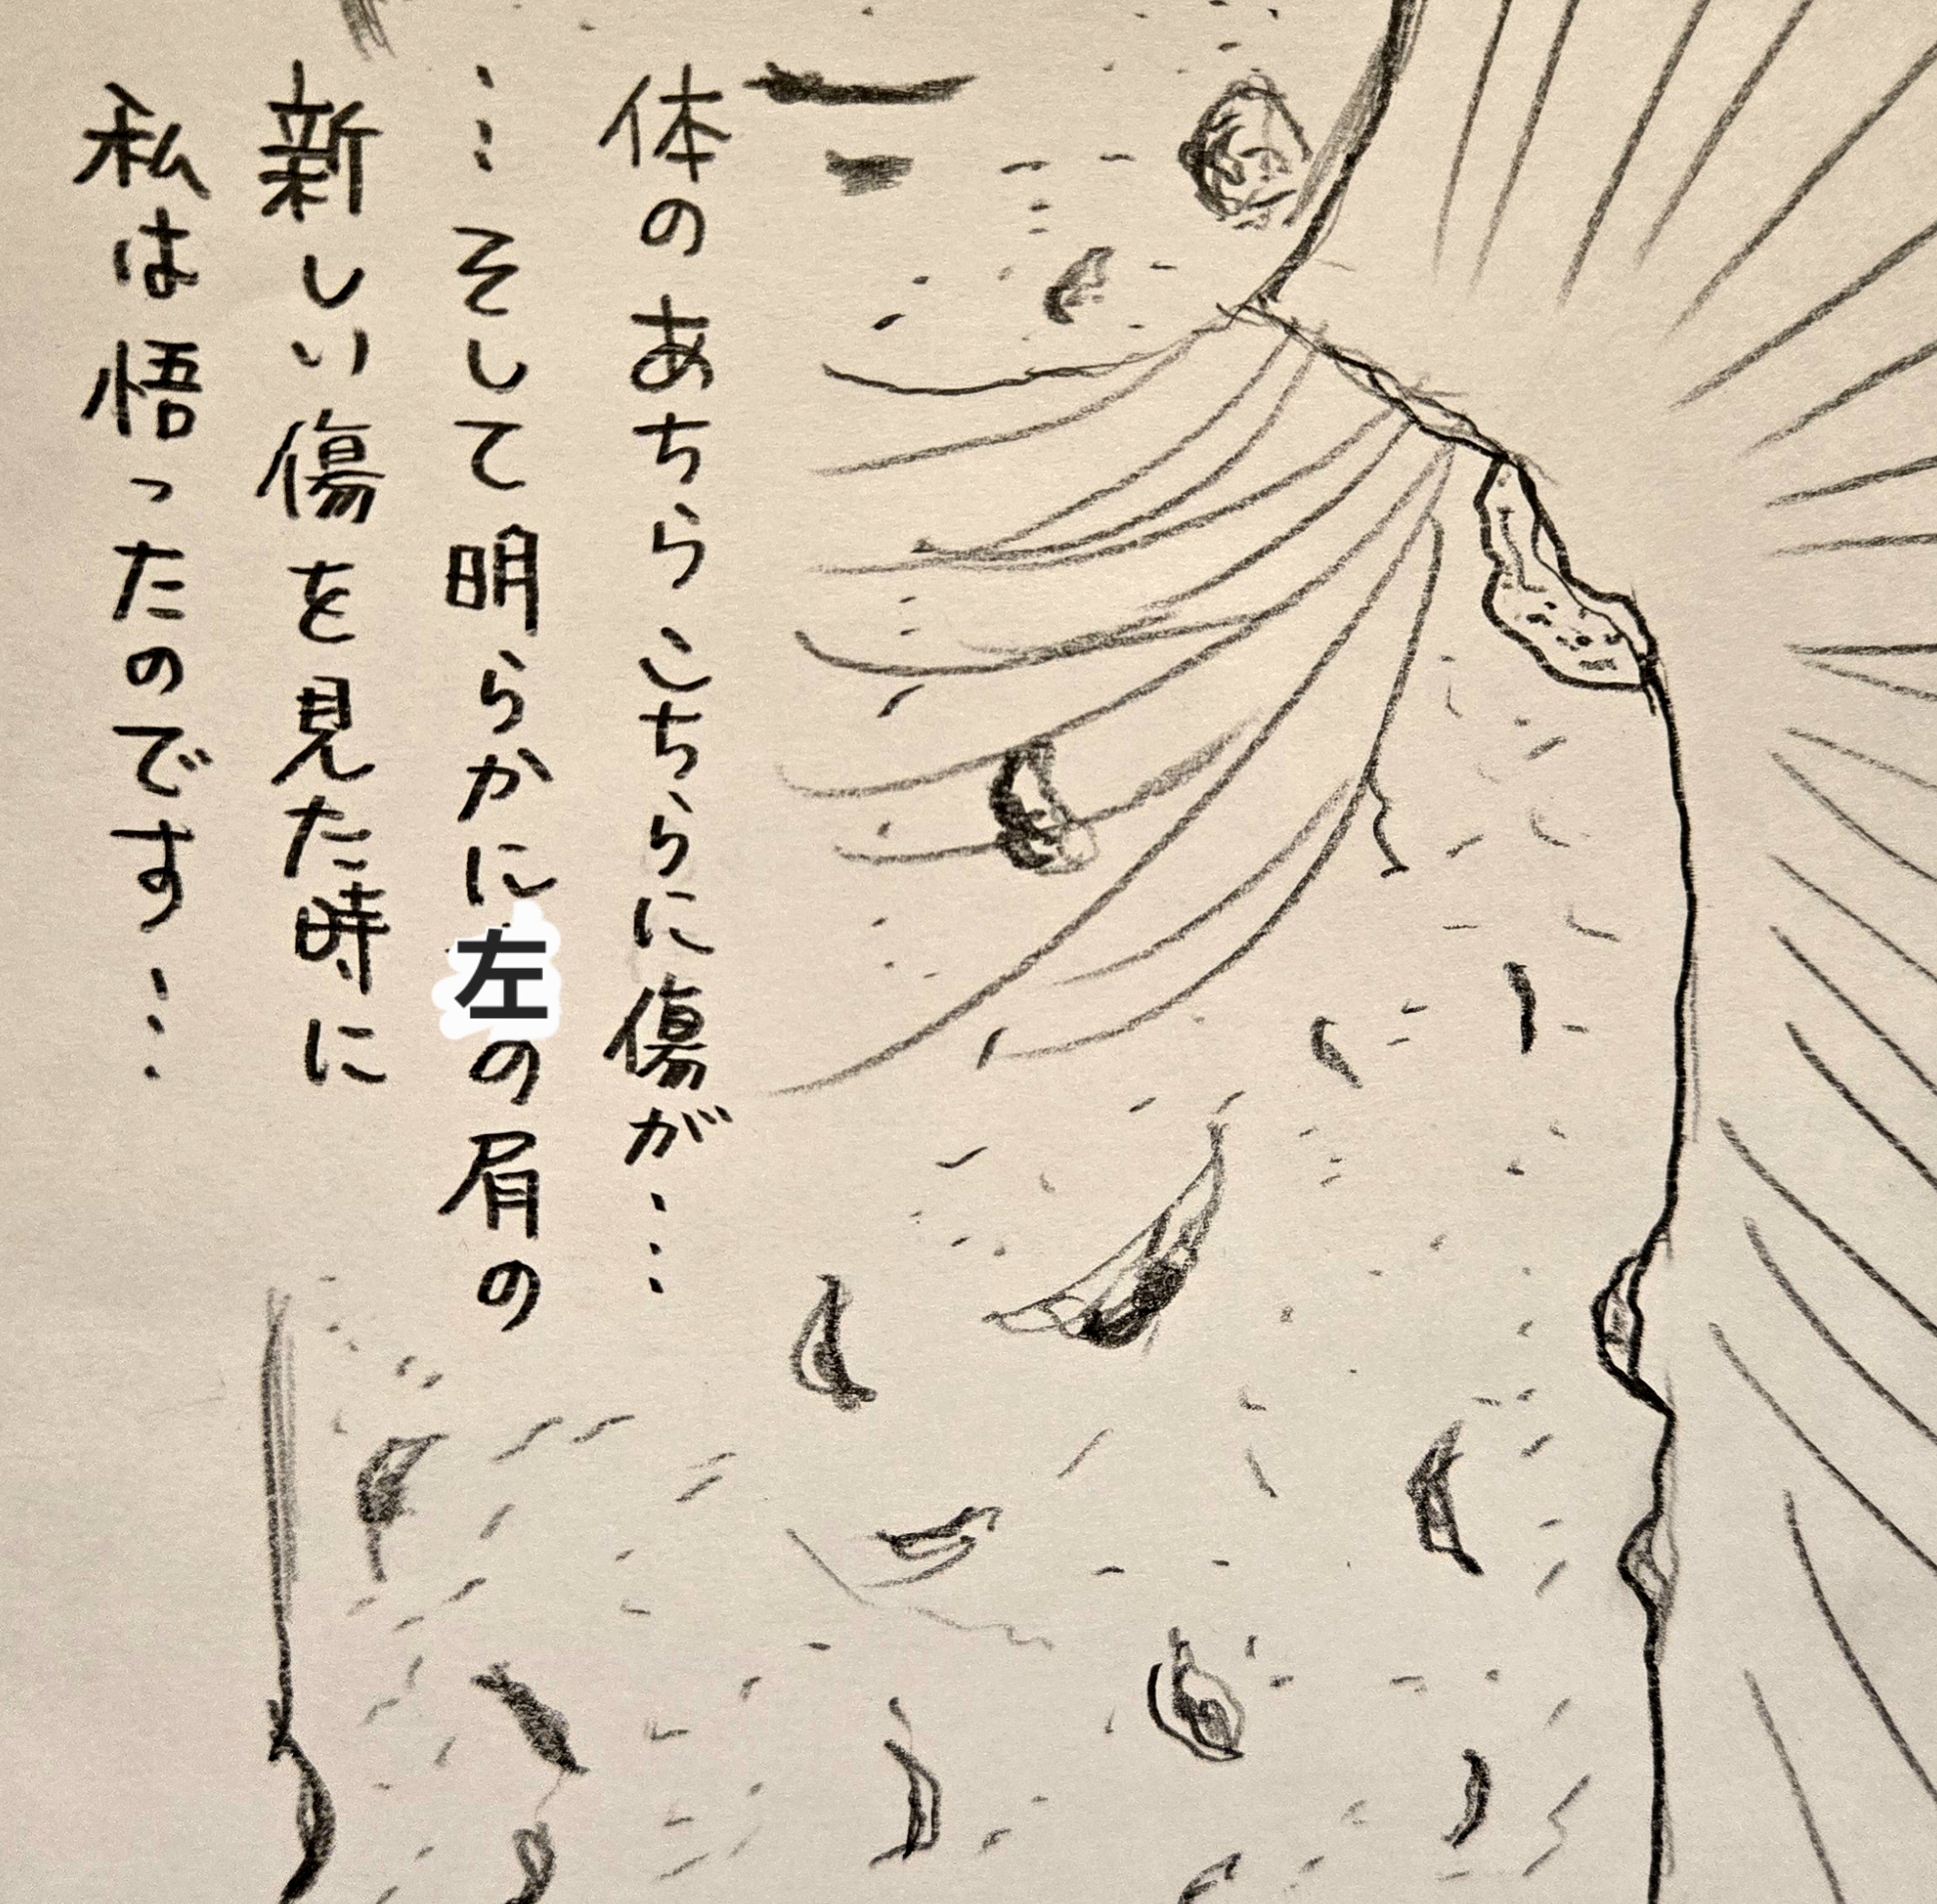 体のあちらこちらに傷が…
…そして明らかに左の肩の
新しい傷を見た時に
私は悟ったのです…